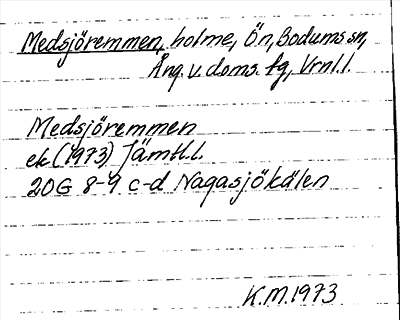 Medsjöremmen, holme, Ön, Bodums sn,
Ång. v. doms. fg, Vrnl. l.
Medsjöremmen
ek (1973) Jämtl. l.
20G 8-9 c-d Nagasjökälen
K.M. 1973